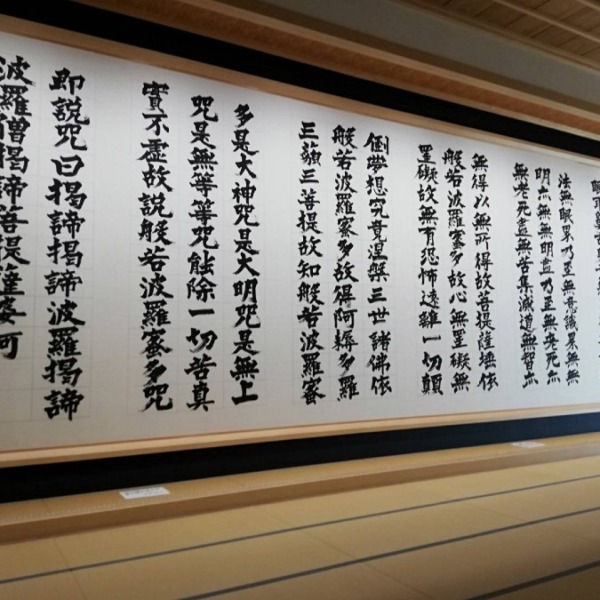 法無眼界乃至無意識界無無
明亦無無明盡乃至無老死亦
無老死盡無苦集滅道無智亦
無得以無所得故菩提薩埵依
般若波羅蜜多故心無罣礙無
罣礙故無有恐怖遠離一切顛
倒夢想究竟涅槃三世諸佛依
般若波羅蜜多故得阿耨多羅
三藐三菩提故知般若波羅蜜
多是大神咒是大明咒是無上
咒是無等等咒能除一切苦真
實不虛故說般若波羅蜜多咒
即說咒曰揭諦揭諦波羅揭諦
波羅僧揭諦菩提薩婆訶